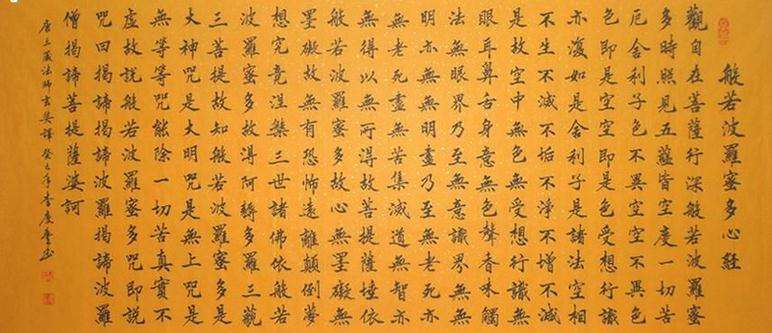 般若波羅蜜多心経
觀自在菩薩行深般若波羅蜜
多時照見五蘊皆空度一切苦
厄舍利子色不異空空不異色
色即是空空即是色受想行識
亦復如是舍利子是諸法空相
不生不滅不垢不淨不增不減
是故空中無色無受想行識無
眼耳鼻舌身意無色聲香味觸
法無眼界乃至無意識界無無
明亦無無明盡乃至無老死亦
無老死盡無苦集滅道無智亦
無得以無所得故菩提薩埵依
般若波羅蜜多故心無罣礙無
罣礙故無有恐怖遠離顛倒夢
想究竟涅槃三世諸佛依般若
波羅蜜多故得阿耨多羅三藐
三菩提故知般若波羅蜜多是
大神咒是大明咒是無上咒是
無等等咒能除一切苦真實不
虛故說般若波羅蜜多咒即說
咒曰揭諦揭諦波羅揭諦波羅
僧揭諦菩提薩婆訶
唐三藏法師玄奘譯 癸巳年